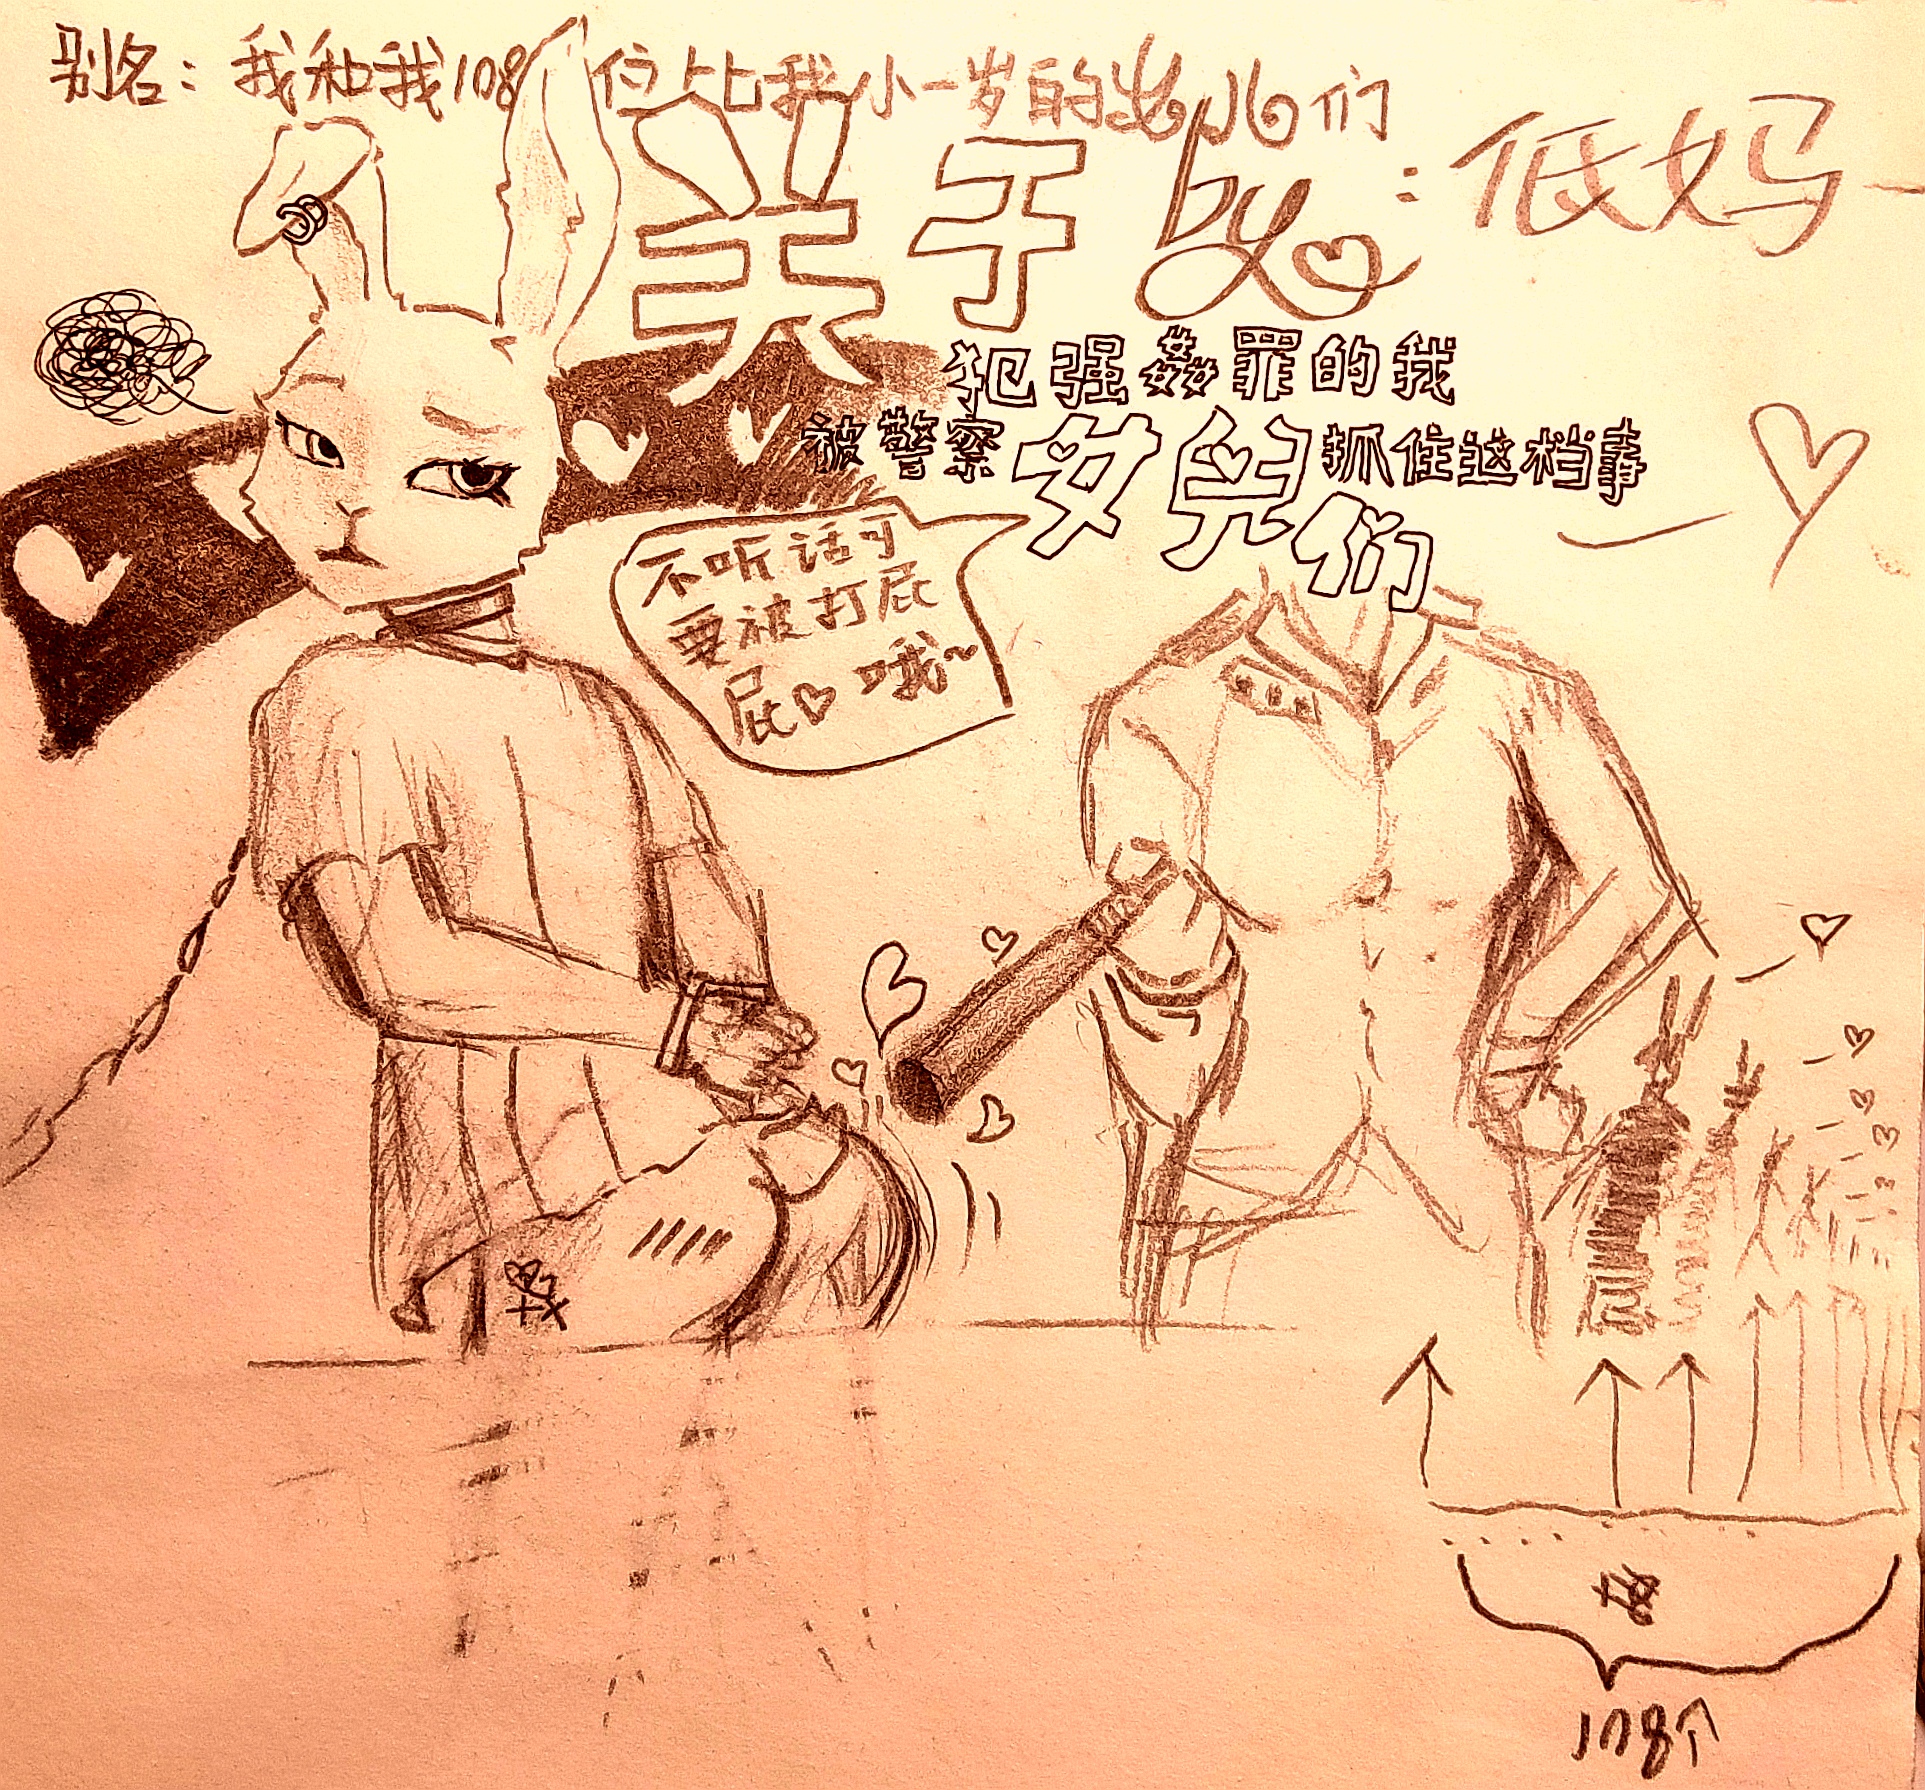 别名：我和我108位比我小一岁的女儿们
关于 by：低妈
犯强姦罪的我
被警察女兒们抓住这档事
不听话可
要被打屁
屁♡哦~
108个